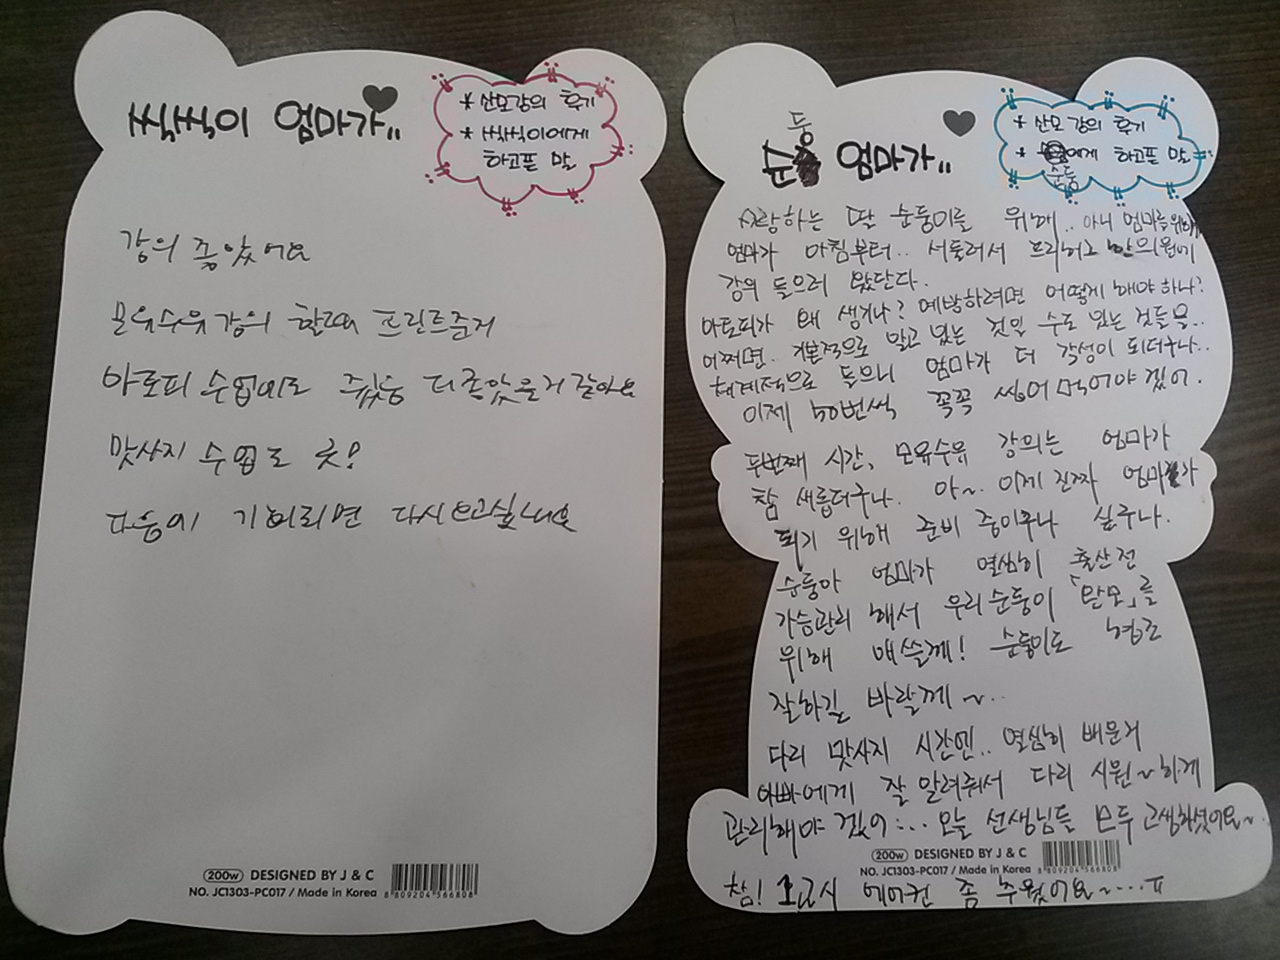 씩씩이 엄마가..
* 산모강의 후기
* 씩씩이에게
하고픈 말
강의 좋았어요
모유수유강의 할때 프린트준거
아토피 수업에도 줬음 더좋았을거 같아요
맛사지 수업도 굿!
다음에 기회되면 다시 오고싶네요
200w DESIGNED BY J & C
NO. JC1303-PC017 / Made in Korea
8 809204 566808
순둥 엄마가..
* 산모 강의 후기
* 순둥에게 하고픈 말
사랑하는 딸 순둥이를 위해.. 아니 엄마를 위해
엄마가 아침부터.. 서둘러서 프라임 한의원에
강의 들으러 왔단다.
아토피가 왜 생기나? 예방하려면 어떻게 해야하나?
어쩌면.. 기본적으로 알고 있는 것일 수도 있는 것들을..
체계적으로 들으니 엄마가 더 각성이 되더구나..
이제 50번씩 꼭꼭 씹어먹어야겠어.
두번째 시간, 모유수유 강의는 엄마가
참 새롭더구나. 아~ 이제 진짜 엄마가
되기 위해 준비 중이구나 싶구나.
순둥아 엄마가 열심히 출산전
가슴관리 해서 우리순둥이 「완모」를
위해 애쓸께! 순둥이도 협조
잘하길 바랄께~..
다리 맛사지 시간엔.. 열심히 배운거
아빠에게 잘 알려줘서 다리 시원~하게
관리해야 겠어... 오늘 선생님들 모두 고생하셨어요~.
200w DESIGNED BY J & C
NO. JC1303-PC017 / Made in Korea
8 809204 566808
참! 1교시 에어컨 좀 추웠어요~....ㅠ